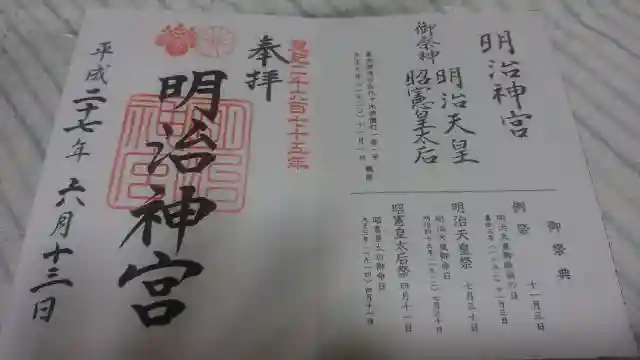 明治神宮
御祭神
明治天皇
昭憲皇太后
御祭典
例祭 十一月三日
明治天皇祭 七月三十日
昭憲皇太后祭 四月十一日
皇紀二千六百七十五年
奉拝
明治神宮
平成二十七年六月十三日